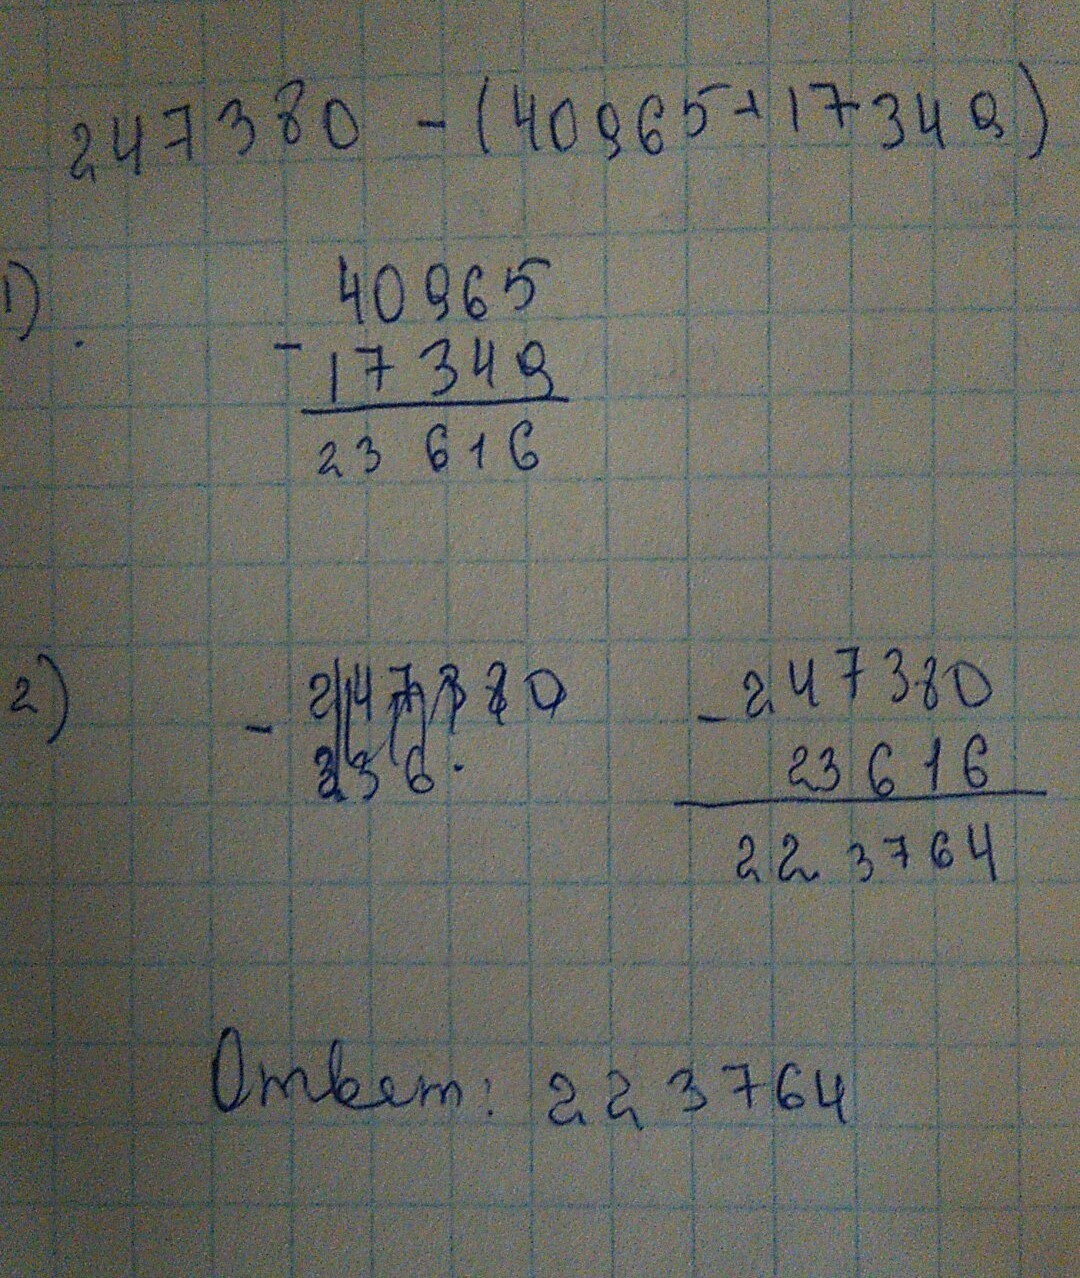 247380 - (40965+17349)
1) 40965
- 17349
23616
2) - 247380 - 247380
236. 23616
223764
Ответ: 223764